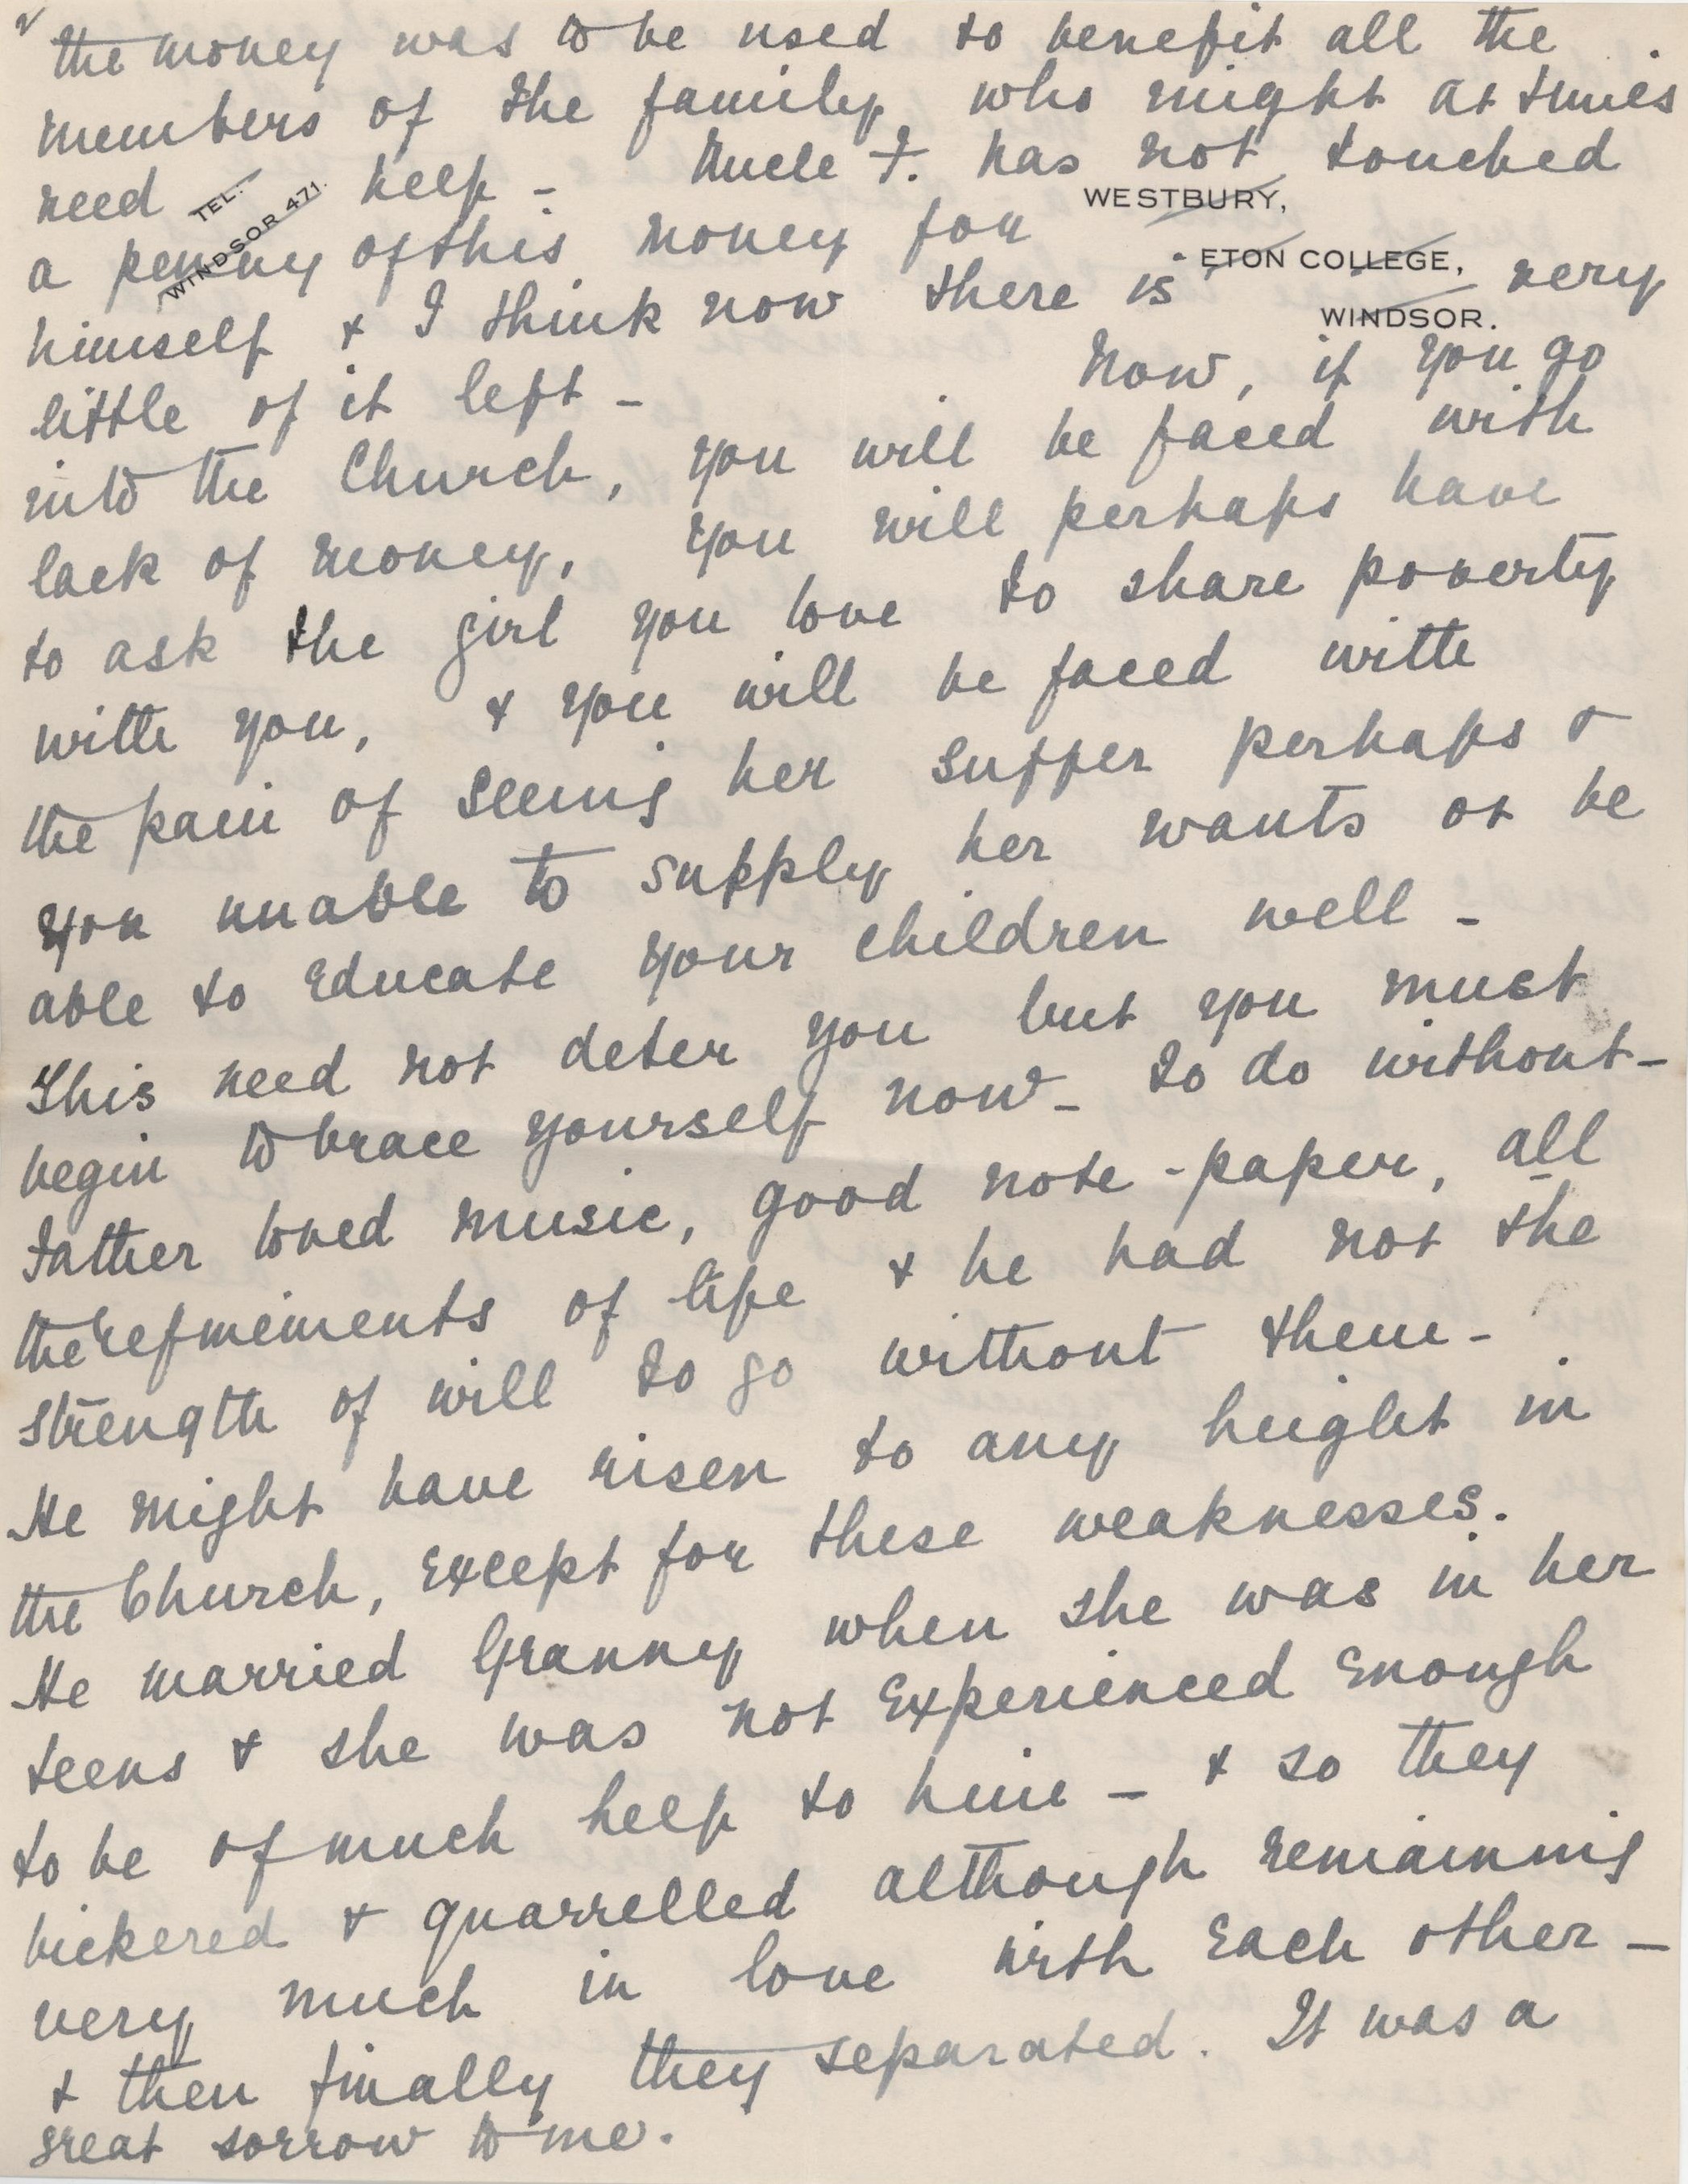 the money was to be used to benefit all the
members of the family who might at times
need help - Uncle F. has not touched
TEL:
WINDSOR 471.
WESTBURY,
ETON COLLEGE,
WINDSOR.
a penny of this money for
himself & I think now there is very
little of it left - Now, if you go
into the Church, you will be faced with
lack of money, you will perhaps have
to ask the girl you love to share poverty
with you, & you will be faced with
the pain of seeing her suffer perhaps &
you unable to supply her wants or be
able to educate your children well -
This need not deter you but you must
begin to brace yourself now - to do without -
Father loved music, good note-paper, all
the refinements of life & he had not the
strength of will to go without them -
He might have risen to any height in
the Church, except for these weaknesses.
He married Granny when she was in her
teens & she was not experienced enough
to be of much help to him - & so they
bickered & quarrelled although remaining
very much in love with each other -
& then finally they separated. It was a
great sorrow to me.